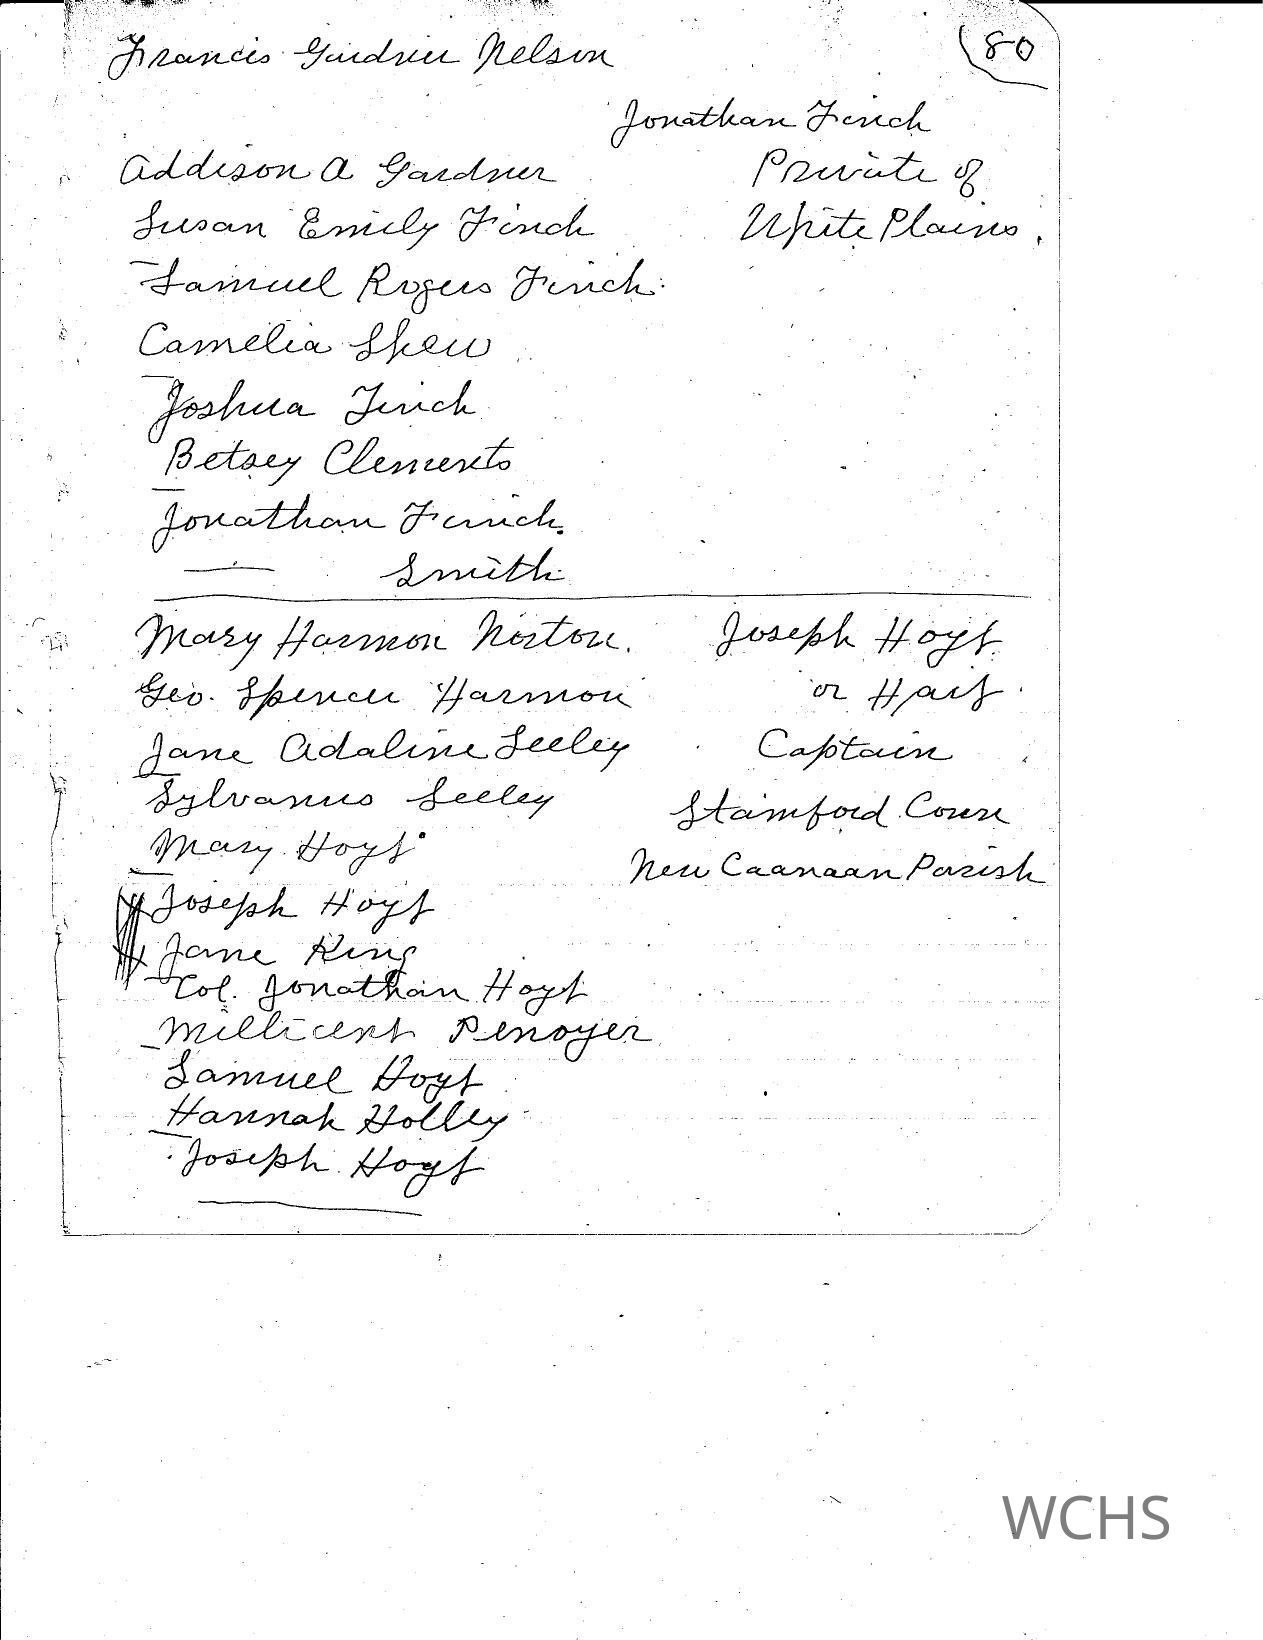 Francis Gardner Nelson
80
Jonathan Finch
Addison A Gardner
Private of
Susan Emily Finch
White Plains.
Samuel Rogers Finch.
Camelia Shew
Joshua Finch
Betsey Clements
Jonathan Finch.
Smith
Mary Harmon Norton.
Joseph Hoyt
Geo. Spencer Harmon
or Hait
Jane Adaline Seeley
Captain
Sylvanus Seeley
Stamford Conn
Mary Hoyt
New Caanaan Parish
Joseph Hoyt
Jane King
Col. Jonathan Hoyt
Millicent Penoyer
Samuel Hoyt
Hannah Holley
Joseph Hoyt
WCHS